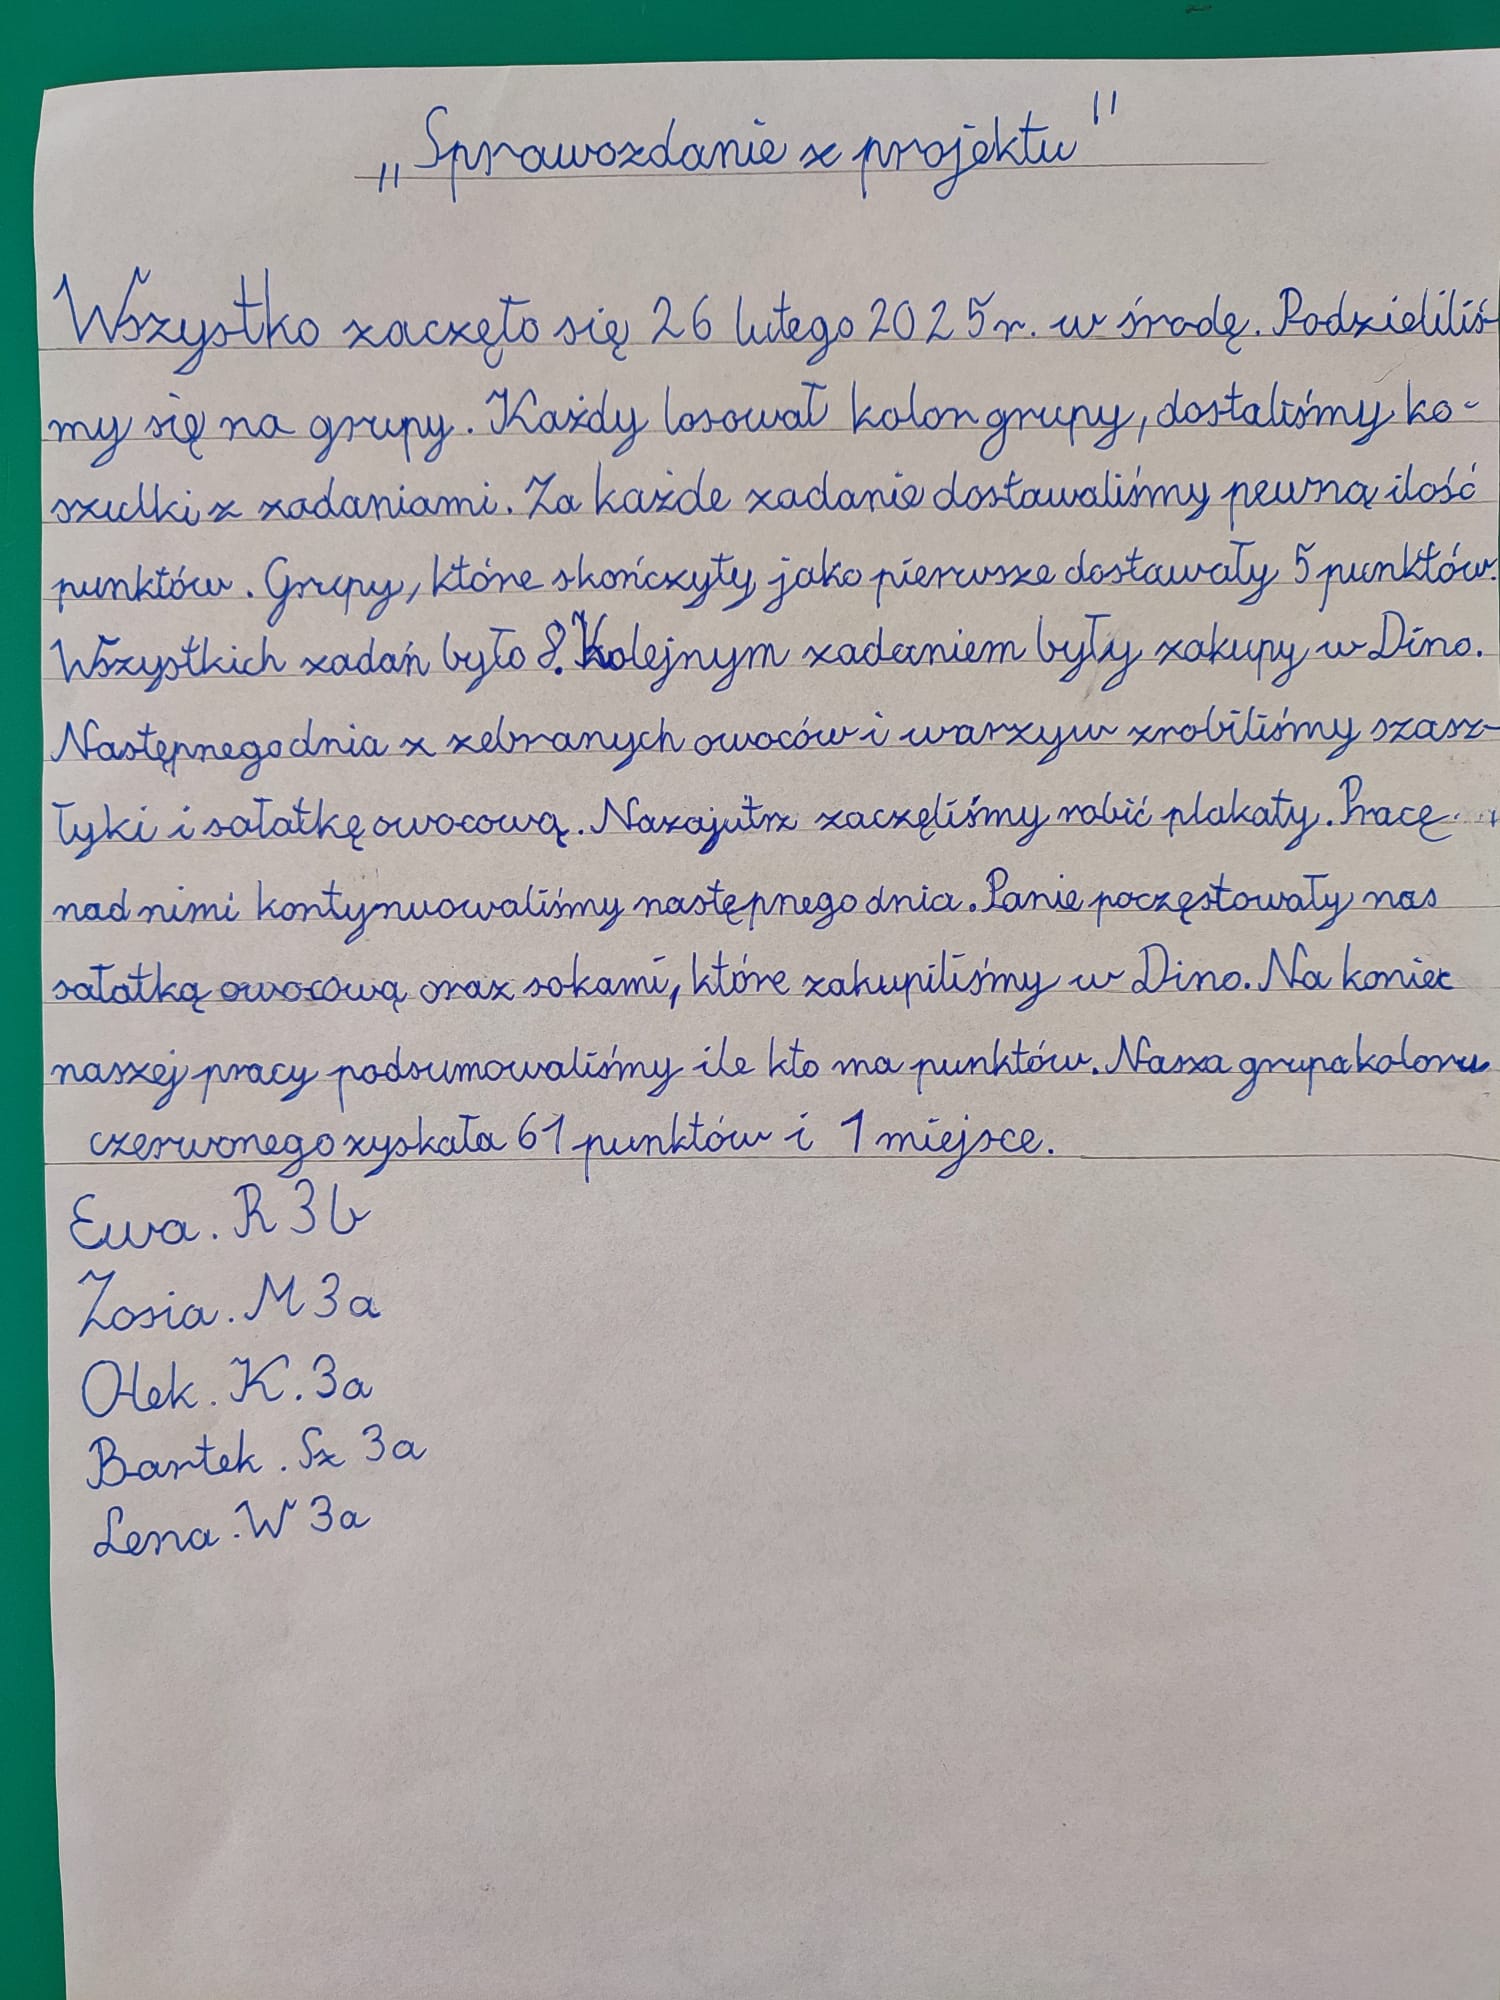 „Sprawozdanie z projektu"
Wszystko zaczęło się 26 lutego 2025r. w środę. Podzieliliś-
my się na grupy. Każdy losował kolor grupy, dostaliśmy ko-
szulki z zadaniami. Za każde zadanie dostawaliśmy pewną ilość
punktów. Grupy, które skończyły jako pierwsze dostawały 5 punktów.
Wszystkich zadań było 8. Kolejnym zadaniem były zakupy w Dino.
Następnego dnia z zebranych owoców i warzyw zrobiliśmy szasz-
łyki i sałatkę owocową. Nazajutrz zaczęliśmy robić plakaty. Pracę
nad nimi kontynuowaliśmy następnego dnia. Panie poczęstowały nas
sałatką owocową oraz sokami, które zakupiliśmy w Dino. Na koniec
naszej pracy podsumowaliśmy ile kto ma punktów. Nasza grupa koloru
czerwonego zyskała 61 punktów i 1 miejsce.
Ewa. R 3b
Zosia. M 3a
Olek. K. 3a
Bartek. Sz 3a
Lena. W 3a